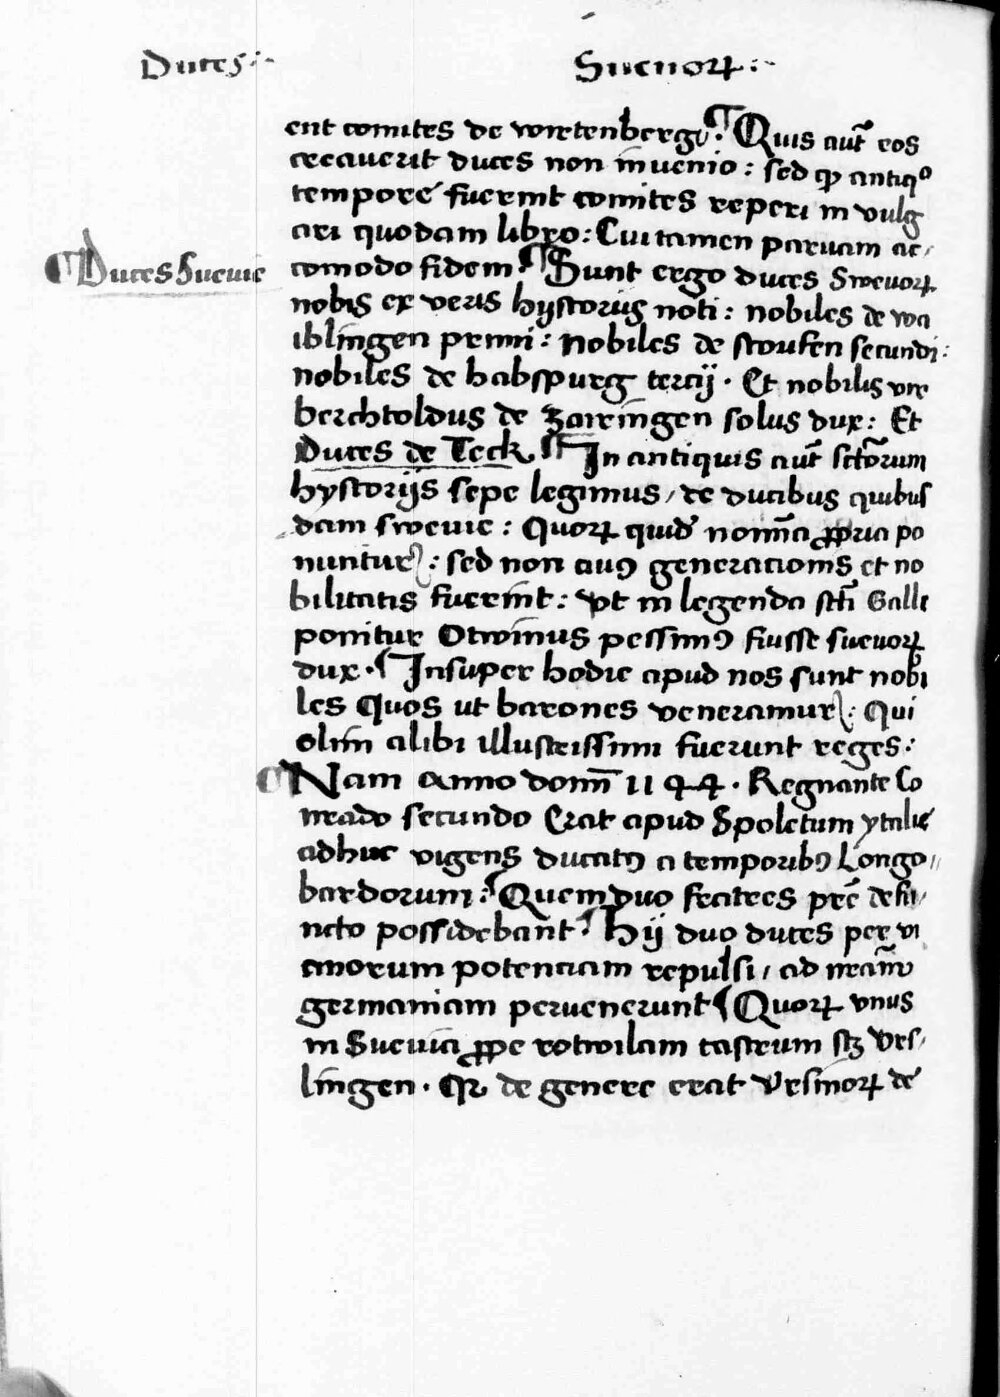 Duces
Sueuoꝝ
ent comites de wirtenberg: ¶ Quis aūt eos
creauerit duces non inuenio: sed ꝙ antiqᵒ
tempore fuerint comites reperi in vulg
ari quodam libro: Cui tamen paruam ac,
¶ Duces Sueuie
comodo fidem. ¶ Sunt ergo duces Sweuoꝝ
nobis ex veris hystorijs noti: nobiles de wa
iblingen primi: Nobiles de stoufen secundi:
nobiles de habspurg tercij. Et nobilis vir
berchtoldus de Zaringen solus dux: Et
Duces de Teck. ¶ In antiquis aūt sctōrum
hystorijs sepe legimus, de ducibus quibus
dam sweuie: Quoꝝ quid' nomīa ꝓpria po
nuntur: sed non cuiꝰ generacionis et no
bilitatis fuerint: vt in legenda scti Galli
ponitur Otwinus pessimꝰ fuisse sueuoꝝ
dux. ¶ Insuper hodie apud nos sunt nobi
les Quos ut barones veneramur: Qui
olim alibi illustrissimi fuerunt reges:
¶ Nam Anno domī 1144. Regnante Co
nrado secundo Erat apud Spoletum ytalie
adhuc vigens ducatꝰ a temporibꝰ Longo,,
bardorum: ¶ Quem duo fratres prē defu,
ncto possidebant ¶ Hij duo duces per vi
cinorum potenciam repulsi, ad nrām
germaniam peruenerunt ¶ Quoꝝ vnus
in Sueuia ꝓpe rotwilam castrum scꝫ Vrs,
lingen. Qr de genere erat Vrsinoꝝ de